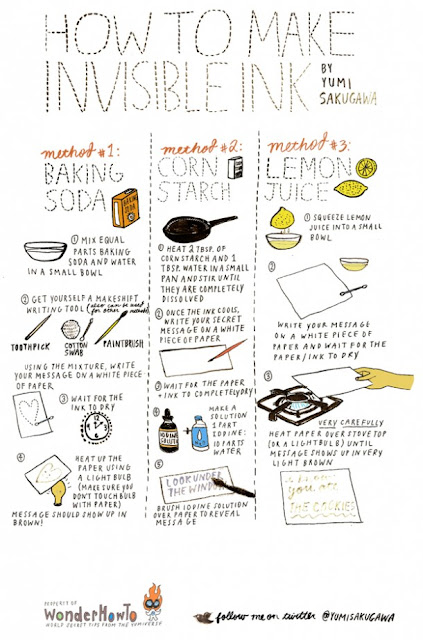 HOW TO MAKE
INVISIBLE INK
BY
YUMI
SAKUGAWA
method #1:
BAKING
SODA
① MIX EQUAL
PARTS BAKING
SODA AND WATER
IN A SMALL BOWL
② GET YOURSELF A MAKESHIFT
WRITING TOOL (also can be used
for other methods)
TOOTHPICK
COTTON
SWAB
PAINTBRUSH
USING THE MIXTURE, WRITE
YOUR MESSAGE ON A WHITE PIECE
OF PAPER
③ WAIT FOR THE
INK TO DRY
④ HEAT UP THE
PAPER USING
A LIGHT BULB
(MAKE SURE YOU
DON'T TOUCH BULB
WITH PAPER)
MESSAGE SHOULD SHOW UP IN
BROWN!
method #2:
CORN
STARCH
① HEAT 2 TBSP. OF
CORNSTARCH AND 1
TBSP. WATER IN A SMALL
PAN AND STIR UNTIL
THEY ARE COMPLETELY
DISSOLVED
② ONCE THE INK COOLS,
WRITE YOUR SECRET
MESSAGE ON A WHITE
PIECE OF PAPER
③ WAIT FOR THE PAPER
+ INK TO COMPLETELY DRY
④ MAKE A
SOLUTION
1 PART
IODINE:
10 PARTS
WATER
IODINE
⑤ LOOK UNDER
THE WINDOW
BRUSH IODINE SOLUTION
OVER PAPER TO REVEAL
MESSAGE
method #3:
LEMON
JUICE
① SQUEEZE LEMON
JUICE INTO A SMALL
BOWL
②
WRITE YOUR MESSAGE
ON A WHITE PIECE OF
PAPER AND WAIT FOR THE
PAPER/INK TO DRY
③
VERY CAREFULLY
HEAT PAPER OVER STOVETOP
(OR A LIGHTBULB) UNTIL
MESSAGE SHOWS UP IN VERY
LIGHT BROWN
you
THE COOKIES
PROPERTY OF
WonderHowTo
WORLD SECRET TIPS FROM THE YUMIVERSE
follow me on twitter @YUMISAKUGAWA